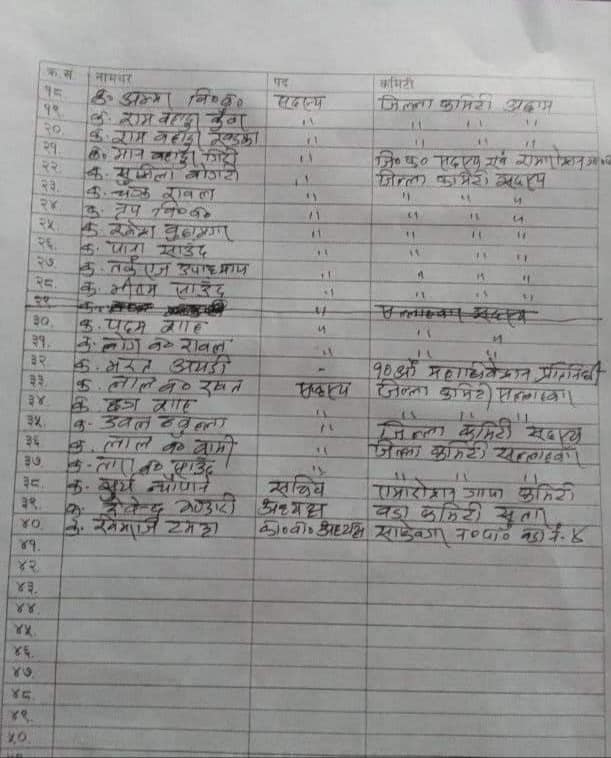 क्र.सं. नामथर पद कमिटी
१८ क. अम्मर वि०क० सदस्य जिल्ला कमिटी अछाम
१९ क. राम बहादुर कुँवर " " " "
२०. क. राम बहादुर खड्का " " " "
२१. क. मान बहादुर गिरी " जि०क० सदस्य एवं
२२. क. सुशिला बोगटी " जिल्ला कमिटी सदस्य
२३. क. चक्र रावल " " " "
२४. क. वि०क० " " " "
२५. क. रमेश बुढामगर " " " "
२६. क. साउँद " " " "
२७. क. तर्कराज उपाध्याय " " " "
२८. क. भीषम साउँद " " " "
२९. " सल्लाहकार सदस्य
३०. क. पदम शाह " " "
३१. क. लोग ब० रावल "
३२. क. भरत अयडी - १० औं महाधिवेशन प्रतिनिधी
३३. क. लाल ब० रावत सदस्य जिल्ला कमिटी सल्लाहकार
३४. क. छत्र शाह " " " "
३५. क. डबल ठकुल्ला " जिल्ला कमिटी सदस्य
३६. क. लाल ब० वामी " जिल्ला कमिटी सल्लाहकार
३७. क. ब० साउँद " " " "
३८. क. सूर्य न्यौपाने सचिव रामारोशन गापा कमिटी
३९. क. देवेन्द्र भण्डारी अध्यक्ष वडा कमिटी
४०. क. खेमराज टमटा का०वा० अध्यक्ष साँफेबगर न०पा० वडा नं. ४
४१.
४२.
४३.
४४.
४५.
४६.
४७.
४८.
४९.
५०.